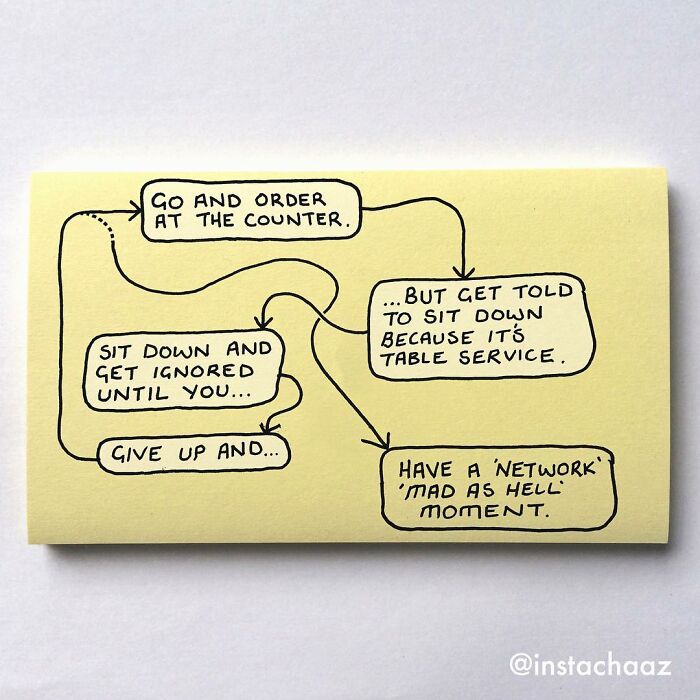 GO AND ORDER
AT THE COUNTER.
...BUT GET TOLD
TO SIT DOWN
BECAUSE IT'S
TABLE SERVICE.
SIT DOWN AND
GET IGNORED
UNTIL YOU...
GIVE UP AND...
HAVE A 'NETWORK'
'MAD AS HELL'
MOMENT.
@instachaaz